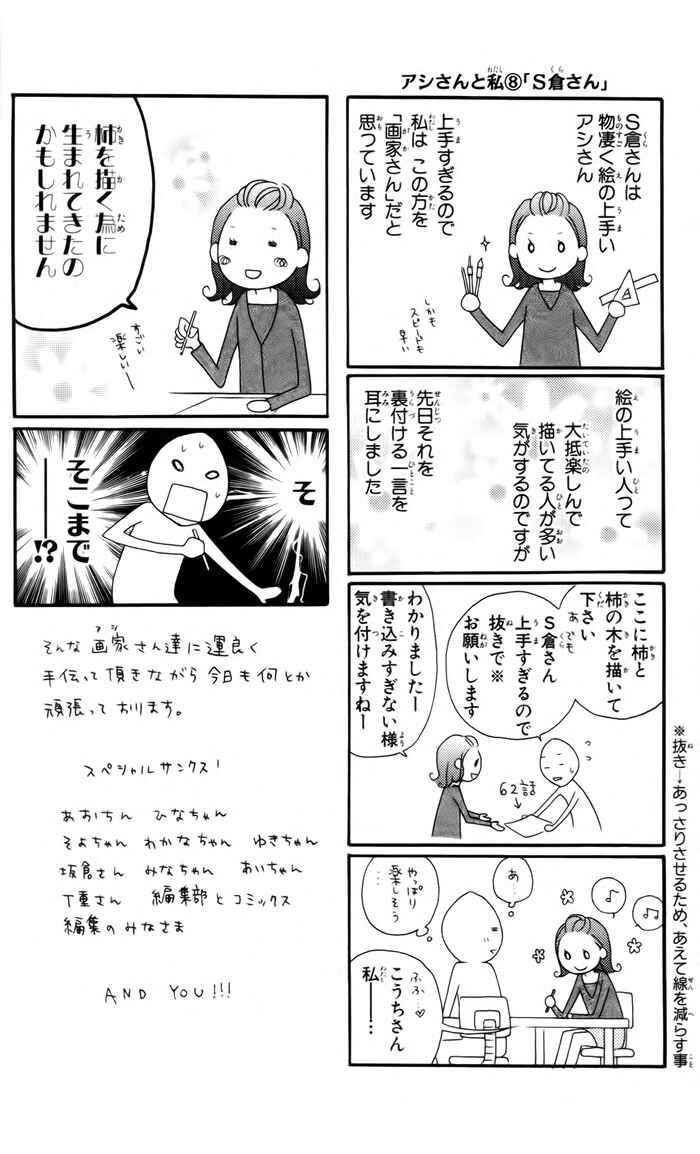 アシさんと私⑧「S倉さん」
S倉さんは
物凄く絵の上手い
アシさん
上手すぎるので
私は この方を
「画家さん」だと
思っています
しかも
スピードも
早い
絵の上手い人って
大抵楽しんで
描いてる人が多い
気がするのですが
先日それを
裏付ける一言を
耳にしました
ここに柿と
柿の木を描いて
下さい
あ でも
S倉さん
上手すぎるので
抜きで※
お願いします
わかりましたー
書き込みすぎない様
気を付けますねー
62話
※抜き→あっさりさせるため、あえて線を減らす事
あ…
やっぱり
楽しそう
…
ふふ…♡
こうちさん
私―…
柿を描く為に
生まれてきたの
かもしれません
すごい
楽しいー
そ
そこまで
―⁉
そんな 画家さん達に運良く
手伝って頂きながら 今日も何とか
頑張って おります。
スペシャルサンクス!
あおちん ひなちゃん
そよちゃん わかなちゃん ゆきちゃん
坂倉さん みなちゃん あいちゃん
T重さん 編集部とコミックス
編集のみなさま
AND YOU!!!